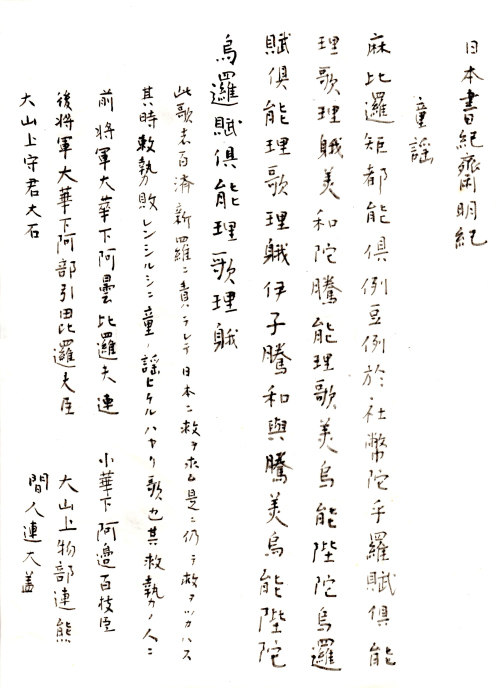 日本書紀齊明紀
童謡
麻比邏矩都能倶例豆例於社幣陀乎羅賦倶能
理歌理鵝美和陀騰能理歌美烏能陛陀烏邏
賦倶能理歌理鵝伊子騰和與騰美烏能陛陀
烏邏賦倶能理歌理鵝
此歌者百済新羅ニ責ラレテ日本ニ救ヲ求ム是ニ仍テ救ヲツカハス
其時救勢敗レンシルシニ童ノ謡ヒケルハヤリ歌也其救執カノ人ニ
前将軍大華下阿曇比邏夫連
小華下阿邊百枝臣
後将軍大華下阿部引田比邏夫臣
大山上物部連熊
大山上守君大石
間人連大盖